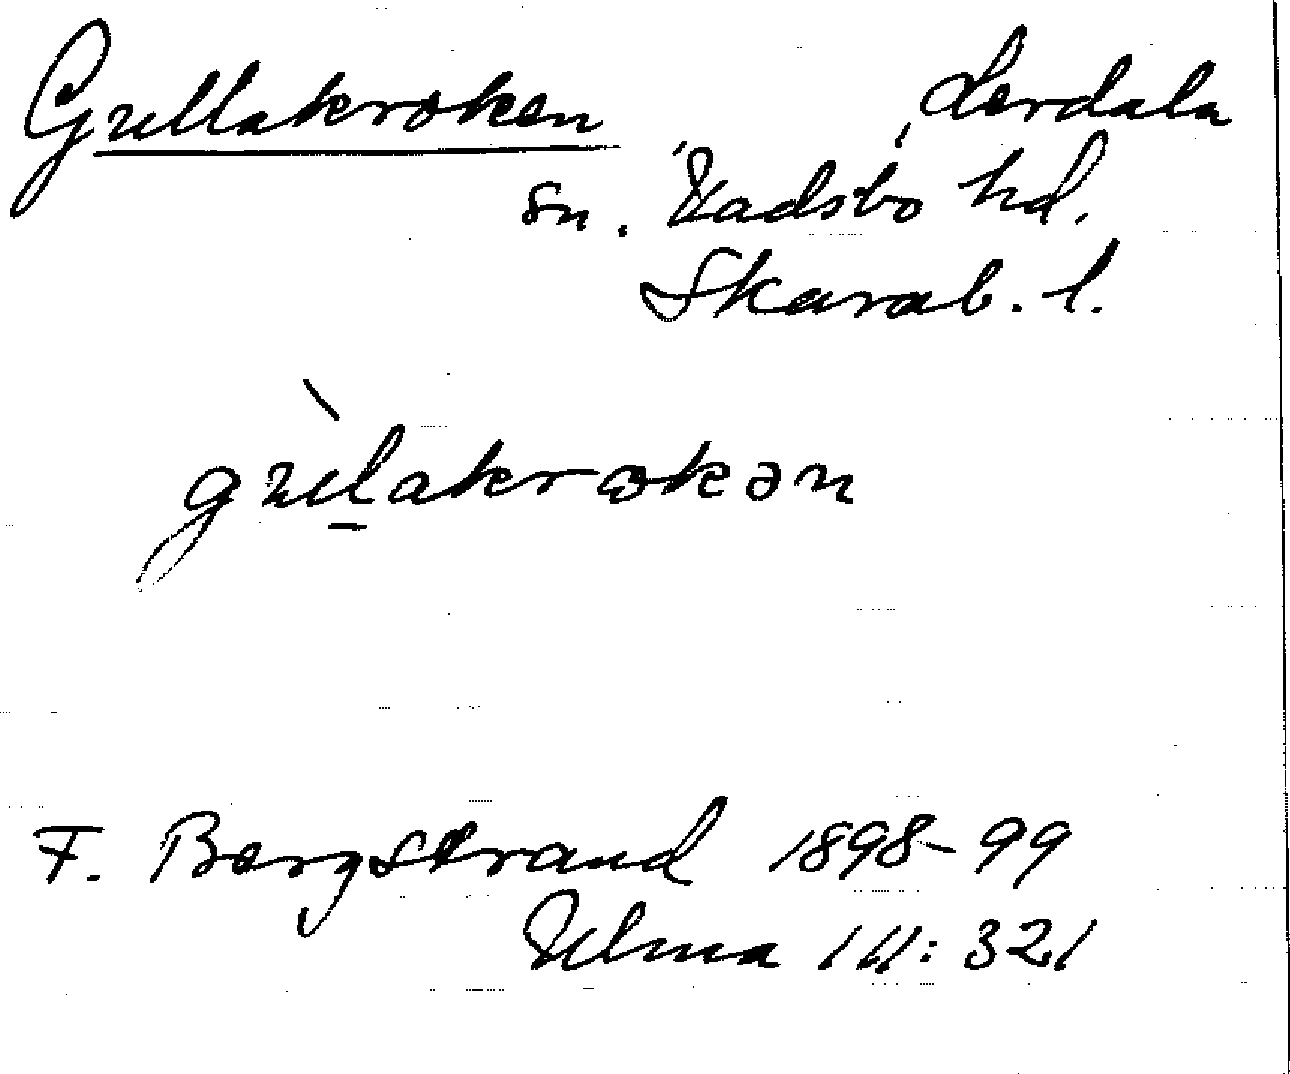 Gullakroken Lerdala
sn. Vadsbo hd.
Skarab. l.
gùl̲akrokən
F. Bergstrand 1898-99
Ulma 111: 321